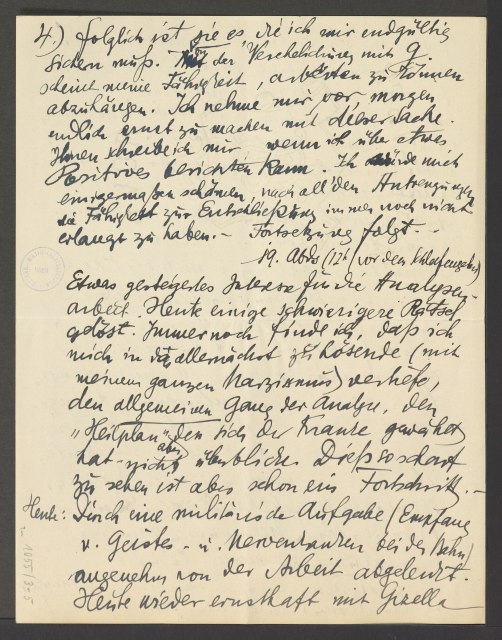 4.) folglich ist sie es die ich mir endgültig
sichern muß. Von der Verehelichung mit G
scheint meine Fähigkeit, arbeiten zu können
abzuhängen. Ich nehme mir vor, morgen
endlich ernst zu machen mit dieser Sache.
Ihnen schreibe ich nur, wenn ich über etwas
Positives berichten kann. Ich würde mich
einigermaßen schämen, nach all den Anstrengungen
die Fähigkeit zur Entschließung immer noch nicht
erlangt zu haben. – Fortsetzung folgt –
19. Abds (12h) vor dem Schlafengehen)
Etwas gesteigertes Interesse für die Analysen-
arbeit. Heute einige schwierigere Rätsel
gelöst. Immer noch finde ich, daß ich
mich in das allernächst zu Lösende (mit
meinem ganzen Narzismus) vertiefe,
den allgemeinen Gang der Analyse, den
„Heilplan" den sich der Kranke gewählt
hat aber nicht überblicke. Dieß so scharf
zu sehen ist aber schon ein Fortschritt. –
Heute: Durch eine militärische Aufgabe (Empfang
v. Geistes- u. Nervenkranken bei der Bahn)
angenehm von der Arbeit abgelenkt.
Heute wieder ernsthaft mit Gizella
1055/35-5